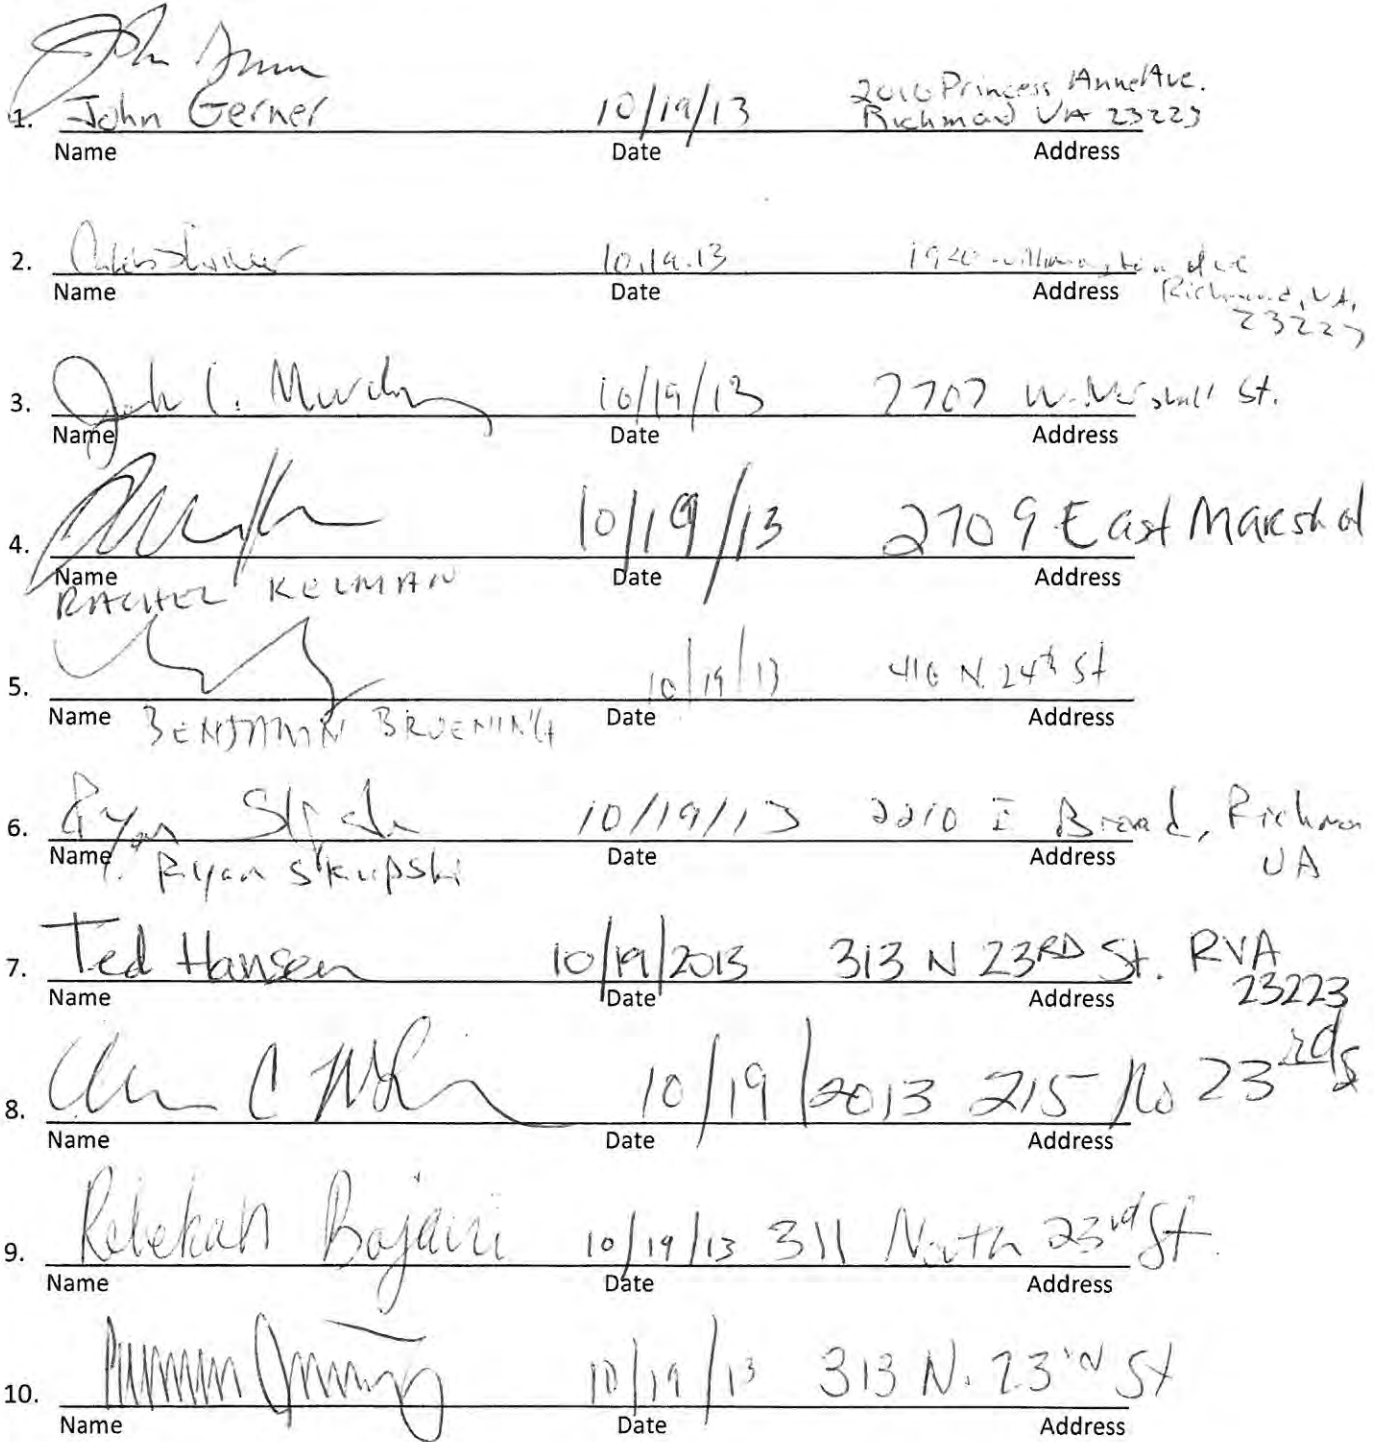 John
1. John Gerner 10/19/13 2010 Princess Anne Ave.
Richmond VA 23223
Name Date Address
2. 10.19.13 1920
Name Date Address Richmond, VA,
23223
3. 10/19/13 2707 W. Marshall St.
Name Date Address
4. 10/19/13 2709 East Marshal
Name Date Address
RACHEL KELMAN
5. 10/19/13 416 N. 24th St
Name Date Address
BENJAMIN BROENING
6. Ryan 10/19/13 2210 E Broad, Richmon
Name Date Address VA
Ryan Skrupski
7. Ted Hansen 10/19/2013 313 N 23RD St. RVA
23223
Name Date Address
8. C 10/19/2013 215 No 23rd S
Name Date Address
9. Rebekah 10/19/13 311 North 23rd St.
Name Date Address
10. 10/19/13 313 N. 23rd St
Name Date Address